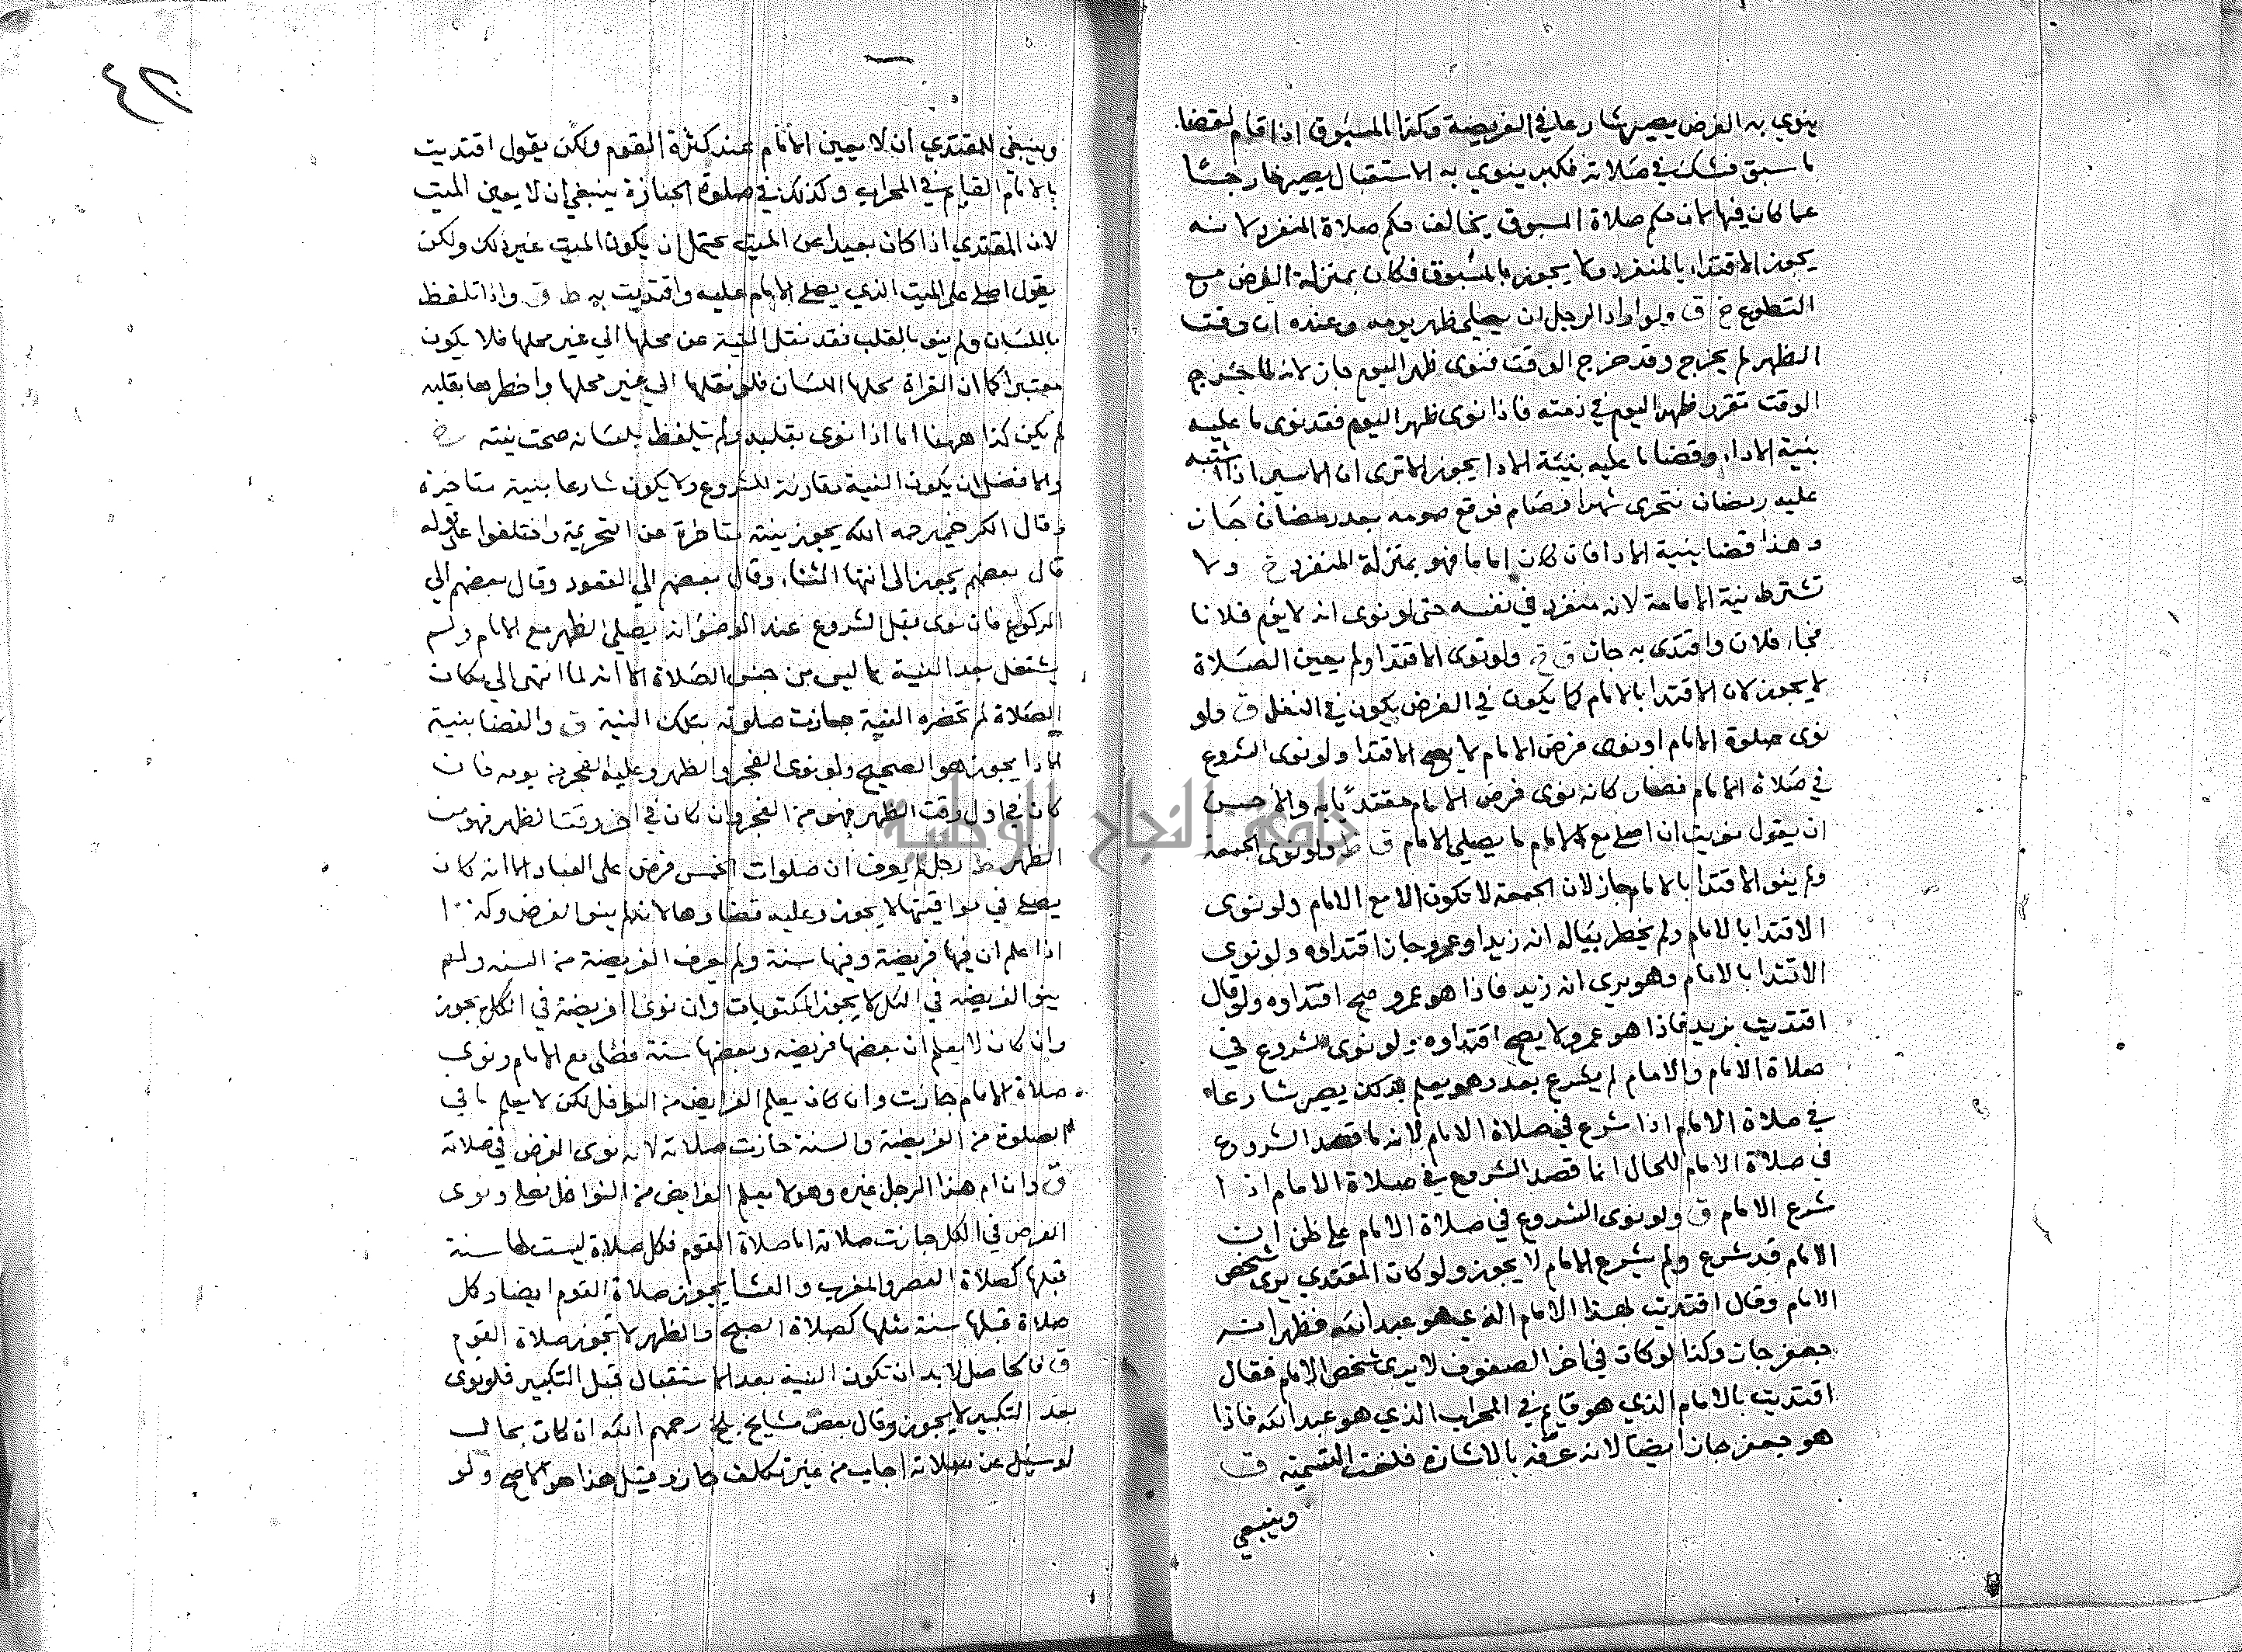 ينوي به الفرض يصير شارعا في الفريضة وكذا المسبوق اذا قام لقضا
ما سبق فشك في صلاته فكبر ينوي به الاستقبال يصير خارجا
عما كان فيها لان حكم صلاة المسبوق يخالف حكم صلاة المنفرد لانه
يجوز الاقتداء بالمنفرد ولا يجوز بالمسبوق فكان بمنزلة الفرض مع
التطوع خ ق ولو اراد الرجل ان يصلي ظهر يومه وعنده ان وقت
الظهر لم يخرج وقد خرج الوقت فنوى ظهر اليوم جاز لانه لما خرج
الوقت تقرر ظهر اليوم في ذمته فاذا نوى ظهر اليوم فقد نوى ما عليه
بنية الاداء وقضا ما عليه بنية الادا يجوز الا ترى ان الاسير اذا اشتبه
عليه رمضان فتحرى شهرا فصام فوقع صومه بعد رمضان جاز
وهذا قضا بنية الادا فان كان اماما فهو بمنزلة المنفرد خ ولا
تشترط نية الامامة لانه منفرد في نفسه حتى لو نوى انه لا يؤم فلانا
فجاء فلان واقتدى به جاز ق ولو نوى الاقتدا ولم يعين الصلاة
لا يجوز لان الاقتدا بالامام كما يكون في الفرض يكون في النفل ق ولو
نوى صلوة الامام او نوى فرض الامام لا يصح الاقتدا ولو نوى الشروع
في صلاة الامام فصار كانه نوى فرض الامام مقتديا به والاحسن
ان يقول نويت ان اصلي مع الامام ما يصلي الامام ق ط ولو نوى الجمعة
ولم ينو الاقتدا بالامام جاز لان الجمعة لا تكون الا مع الامام ولو نوى
الاقتدا بالامام ولم يخطر بباله انه زيد او عمرو جاز اقتداوه ولو نوى
الاقتدا بالامام وهو يرى انه زيد فاذا هو عمرو صح اقتداوه ولو قال
اقتديت بزيد فاذا هو عمرو لا يصح اقتداوه ولو نوى الشروع في
صلاة الامام والامام لم يشرع بعد وهو يعلم بذلك يصير شارعا
في صلاة الامام اذا شرع في صلاة الامام لانه ما قصد الشروع
في صلاة الامام للحال انما قصد الشروع في صلاة الامام اذا
شرع الامام ق ولو نوى الشروع في صلاة الامام على ظن ان
الامام قد شرع ولم يشرع الامام لا يجوز ولو كان المقتدي يرى شخص
الامام وقال اقتديت بهذا الامام الذي هو عبد الله فظهر انه
جعفر جاز وكذا لو كان في اخر الصفوف لا يرى شخص الامام فقال
اقتديت بالامام الذي هو قايم في المحراب الذي هو عبد الله فاذا
هو جعفر جاز ايضا لانه عرفه بالاشارة فلغت التسمية ق
وينبغي
٤٢
وينبغي للمقتدي ان لا يعين الامام عند كثرة القوم ولكن يقول اقتديت
بالامام القايم في المحراب وكذلك في صلوة الجنازة ينبغي ان لا يعين الميت
لان المقتدي اذا كان بعيدا عن الميت يحتمل ان يكون الميت غير ذلك ولكن
يقول اصلي على الميت الذي يصلي الامام عليه واقتديت به ط ق واذا تلفظ
باللسان ولم ينو بالقلب فقد نقل النية عن محلها الي غير محلها فلا يكون
معتبرا كما ان القراة محلها اللسان فلو نقلها الي غير محلها واخطرها بقلبه
لم يكن كذا ههنا اما اذا نوى بقلبه ولم يتلفظ بلسانه صحت نيته خ
والافضل ان يكون النية مقارنة للشروع ولا يكون شارعا بنية متاخرة
وقال الكرخي رحمه الله يجوز بنية متاخرة عن التحريمة واختلفوا على قوله
قال بعضهم يجوز الى انتها الثناء وقال بعضهم الي القعود وقال بعضهم الي
الركوع فان نوى قبل الشروع عند الوضؤ انه يصلي الظهر مع الامام ولم
يشتغل بعد النية بما ليس من جنس الصلاة الا انه لما انتهى الي مكان
الصلاة لم تحضره النية جازت صلوته بتلك النية ق والقضا بنية
الادا يجوز هو الصحيح ولو نوى الفجر والظهر وعليه الفجر من يومه فان
كان في اول وقت الظهر فهو من الفجر وان كان في اخر وقت الظهر فهو من
الظهر ط رجل لم يعرف ان صلوات الخمس فرض على العباد الا انه كان
يصلي في مواقيتها لا يجوز وعليه قضاوها لانه لم ينو الفرض وكذا
اذا علم ان فيها فريضة وفيها سنة ولم يعرف الفريضة من السنه ولم
ينو الفريضه في الكل لا يجوز المكتوبات وان نوى الفريضة في الكل يجوز
وان كان لا يعلم ان بعضها فريضه وبعضها سنة فصلى مع الامام ونوى
صلاة الامام جازت وان كان يعلم الفرايض من النوافل لكن لا يعلم ما في
الصلوة من الفريضة والسنة جازت صلاته لانه نوى الفرض في صلاته
ق وان ام هذا الرجل غيره وهو لا يعلم الفرايض من النوافل فصلي ونوى
الفرض في الكل جازت صلاته اما صلاة القوم فكل صلاة ليست لها سنة
قبلها كصلاة العصر والمغرب والعشا يجوز صلاة القوم ايضا وكل
صلاة قبلها سنة مثلها كصلاة الصبح والظهر لا تجوز صلاة القوم
ق فالحاصل لا بد ان تكون النية بعد الاستقبال قبل التكبير فلو نوى
بعد التكبير لا يجوز وقال بعض مشايخ بلخ رحمهم الله ان كان بحال
لو سئل عن صلاته اجاب من غير تكلف جاز وقيل هذا هو الاصح ولو